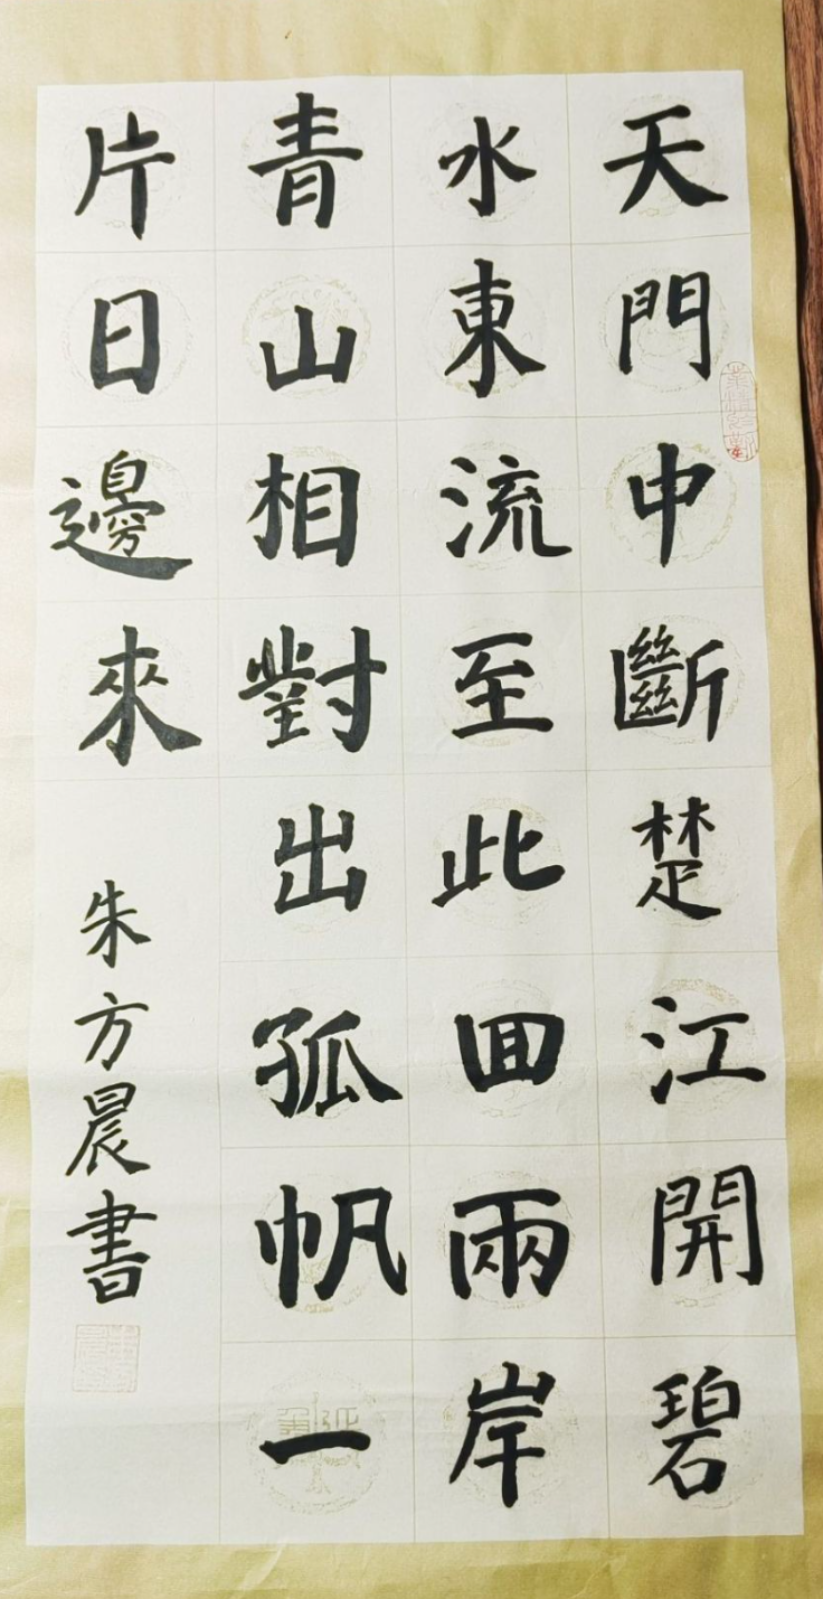 天門中斷楚江開碧
水東流至此回兩岸
青山相對出孤帆一
片日邊來
朱方晨書